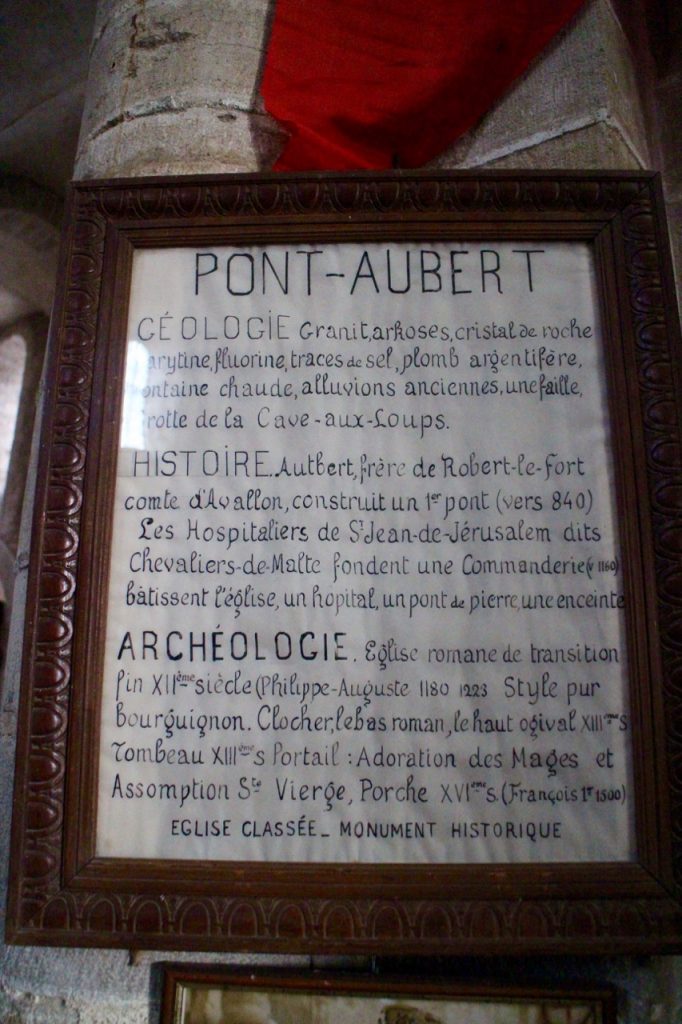 PONT-AUBERT
GÉOLOGIE Granit, arkoses, cristal de roche
barytine, fluorine, traces de sel, plomb argentifère,
fontaine chaude, alluvions anciennes, une faille,
Grotte de la Cave-aux-Loups.
HISTOIRE. Autbert, frère de Robert-le-Fort
comte d'Avallon, construit un 1er pont (vers 840)
Les Hospitaliers de St Jean-de-Jérusalem dits
Chevaliers-de-Malte fondent une Commanderie (v 1160)
bâtissent l'église, un hopital, un pont de pierre, une enceinte
ARCHÉOLOGIE. Eglise romane de transition
fin XIIème siècle (Philippe-Auguste 1180 1223 Style pur
bourguignon. Clocher, le bas roman, le haut ogival XIIIème S
Tombeau XIIIème s Portail : Adoration des Mages et
Assomption Ste Vierge, Porche XVIème s. (François 1er 1500)
EGLISE CLASSÉE _ MONUMENT HISTORIQUE